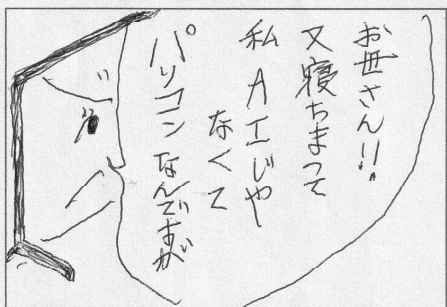 お母さん!!
又寝ちまって
私AIじゃ
なくて
パソコンなんですが